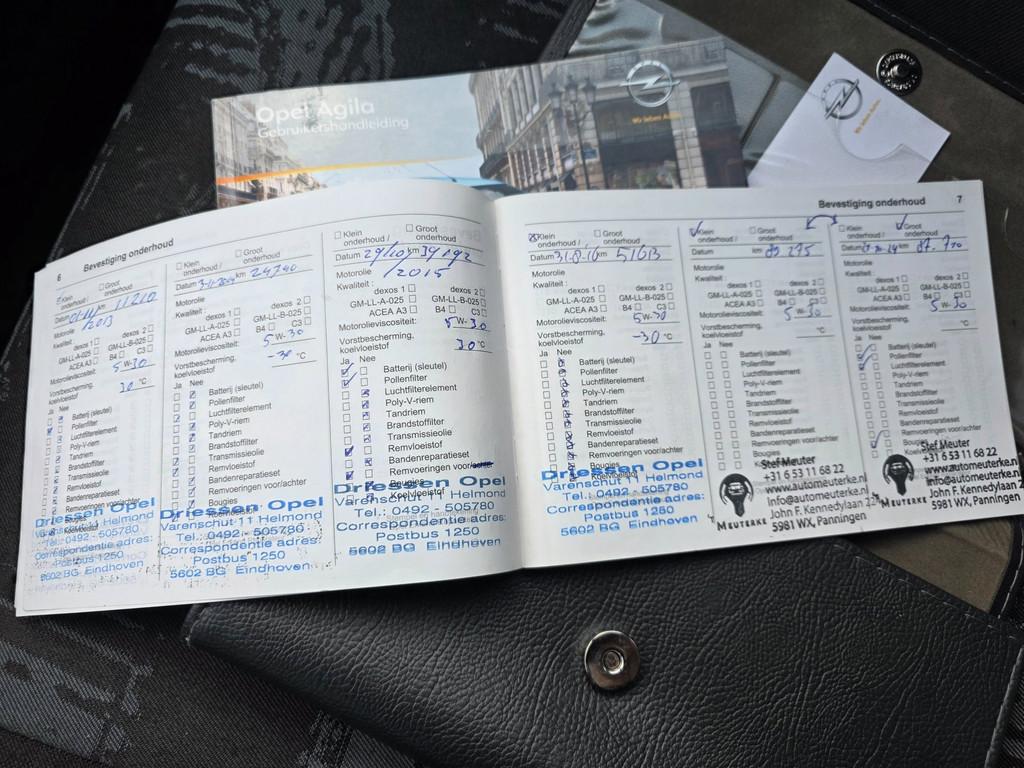 Opel Agila
Gebruikershandleiding
Wir leben Autos.
Wir leben Autos.
6 Bevestiging onderhoud
Klein onderhoud / Groot onderhoud
Datum km 11210
/2013
Motorolie
Kwaliteit :
dexos 1 dexos 2
GM-LL-A-025 GM-LL-B-025
ACEA A3 B4 C3
Motorolieviscositeit: 5W-30
Vorstbescherming,
koelvloeistof 30 °C
Ja Nee
Batterij (sleutel)
Pollenfilter
Luchtfilterelement
Poly-V-riem
Tandriem
Brandstoffilter
Transmissieolie
Remvloeistof
Bandenreparatieset
Remvoeringen voor/achter
Driessen Opel
Varenschut 11 Helmond
Tel.: 0492 - 505780
Correspondentie adres:
Postbus 1250
5602 BG Eindhoven
Klein
onderhoud /
Groot
onderhoud
Datum 3-11-2014 km 24740
Motorolie
Kwaliteit :
dexos 1 dexos 2
GM-LL-A-025 GM-LL-B-025
ACEA A3 B4 C3
Motorolieviscositeit: 5W-30
Vorstbescherming,
koelvloeistof -30 °C
Ja Nee
Batterij (sleutel)
Pollenfilter
Luchtfilterelement
Poly-V-riem
Tandriem
Brandstoffilter
Transmissieolie
Remvloeistof
Bandenreparatieset
Remvoeringen voor/achter
Bougies
Driessen Opel
Varenschut 11 Helmond
Tel.: 0492 - 505780
Correspondentie adres:
Postbus 1250
5602 BG Eindhoven
Klein
onderhoud /
Groot
onderhoud
Datum 29/10 km 39192
/2015
Motorolie
Kwaliteit :
dexos 1 dexos 2
GM-LL-A-025 GM-LL-B-025
ACEA A3 B4 C3
Motorolieviscositeit: 5W-30
Vorstbescherming,
koelvloeistof 30 °C
Ja Nee
Batterij (sleutel)
Pollenfilter
Luchtfilterelement
Poly-V-riem
Tandriem
Brandstoffilter
Transmissieolie
Remvloeistof
Bandenreparatieset
Remvoeringen voor/achter
Bougies
Koelvloeistof
Driessen Opel
Varenschut 11 Helmond
Tel.: 0492 - 505780
Correspondentie adres:
Postbus 1250
5602 BG Eindhoven
Bevestiging onderhoud 7
Klein
onderhoud /
Groot
onderhoud
Datum 31-8-16 km 51613
Motorolie
Kwaliteit :
dexos 1 dexos 2
GM-LL-A-025 GM-LL-B-025
ACEA A3 B4 C3
Motorolieviscositeit: 5W-30
Vorstbescherming,
koelvloeistof -30 °C
Ja Nee
Batterij (sleutel)
Pollenfilter
Luchtfilterelement
Poly-V-riem
Tandriem
Brandstoffilter
Transmissieolie
Remvloeistof
Bandenreparatieset
Remvoeringen voor/achter
Bougies
Driessen Opel
Varenschut 11 Helmond
Tel.: 0492 - 505780
Correspondentie adres:
Postbus 1250
5602 BG Eindhoven
Klein
onderhoud /
Groot
onderhoud
Datum km 275
Motorolie
Kwaliteit :
dexos 1 dexos 2
GM-LL-A-025 GM-LL-B-025
ACEA A3 B4 C3
Motorolieviscositeit: 5W-30
Vorstbescherming,
koelvloeistof °C
Ja Nee
Batterij (sleutel)
Pollenfilter
Luchtfilterelement
Poly-V-riem
Tandriem
Brandstoffilter
Transmissieolie
Remvloeistof
Bandenreparatieset
Remvoeringen voor/achter
Bougies
Stef Meuter
+31 6 53 11 68 22
www.automeuterke.nl
info@automeuterke.nl
John F. Kennedylaan
5981 WX, Panningen
MEUTERKE
Klein
onderhoud /
Groot
onderhoud
Datum km 87.700
Motorolie
Kwaliteit :
dexos 1 dexos 2
GM-LL-A-025 GM-LL-B-025
ACEA A3 B4 C3
Motorolieviscositeit: 5W-30
Vorstbescherming,
koelvloeistof °C
Ja Nee
Batterij (sleutel)
Pollenfilter
Luchtfilterelement
Poly-V-riem
Tandriem
Brandstoffilter
Transmissieolie
Remvloeistof
Bandenreparatieset
Remvoeringen voor/achter
Bougies
Stef Meuter
+31 6 53 11 68 22
www.automeuterke.nl
info@automeuterke.nl
John F. Kennedylaan 2
5981 WX, Panningen
MEUTERKE